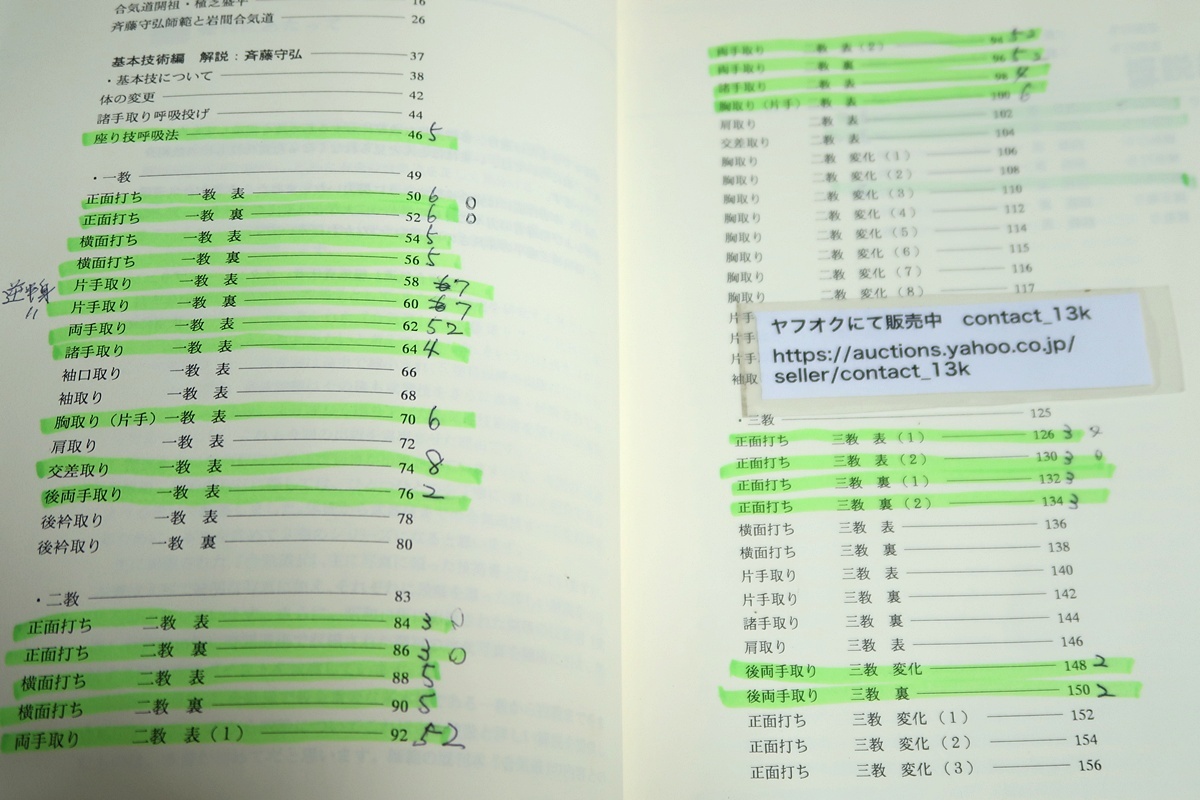 合気道開祖・植芝盛平 16
斉藤守弘師範と岩間合気道 26
基本技術編 解説：斉藤守弘 37
・基本技について 38
体の変更 42
諸手取り呼吸投げ 44
座り技呼吸法 46 5
・一教 49
正面打ち 一教 表 50 6 0
正面打ち 一教 裏 52 6 0
横面打ち 一教 表 54 5
横面打ち 一教 裏 56 5
片手取り 一教 表 58 7
片手取り 一教 裏 60 7
両手取り 一教 表 62 5 2
諸手取り 一教 表 64 4
袖口取り 一教 表 66
袖取り 一教 表 68
胸取り（片手） 一教 表 70 6
肩取り 一教 表 72
交差取り 一教 表 74 8
後両手取り 一教 表 76 2
後衿取り 一教 表 78
後衿取り 一教 裏 80
・二教 83
正面打ち 二教 表 84 3 0
正面打ち 二教 裏 86 3 0
横面打ち 二教 表 88 5
横面打ち 二教 裏 90 5
両手取り 二教 表（1） 92 5 2
両手取り 二教 表（2） 94 5 2
両手取り 二教 裏 96 5 2
諸手取り 二教 表 98 4
胸取り（片手） 二教 表 100 6
肩取り 二教 表 102
交差取り 二教 表 104
胸取り 二教 変化（1） 106
胸取り 二教 変化（2） 108
胸取り 二教 変化（3） 110
胸取り 二教 変化（4） 112
胸取り 二教 変化（5） 114
胸取り 二教 変化（6） 115
胸取り 二教 変化（7） 116
胸取り 二教 変化（8） 117
片手
片手
片手
袖取
ヤフオクにて販売中 contact_13k
https://auctions.yahoo.co.jp/
seller/contact_13k
・三教 125
正面打ち 三教 表（1） 126 3
正面打ち 三教 表（2） 130 3 0
正面打ち 三教 裏（1） 132 3
正面打ち 三教 裏（2） 134 3
横面打ち 三教 表 136
横面打ち 三教 裏 138
片手取り 三教 表 140
片手取り 三教 裏 142
諸手取り 三教 表 144
肩取り 三教 表 146
後両手取り 三教 変化 148 2
後両手取り 三教 裏 150 2
正面打ち 三教 変化（1） 152
正面打ち 三教 変化（2） 154
正面打ち 三教 変化（3） 156